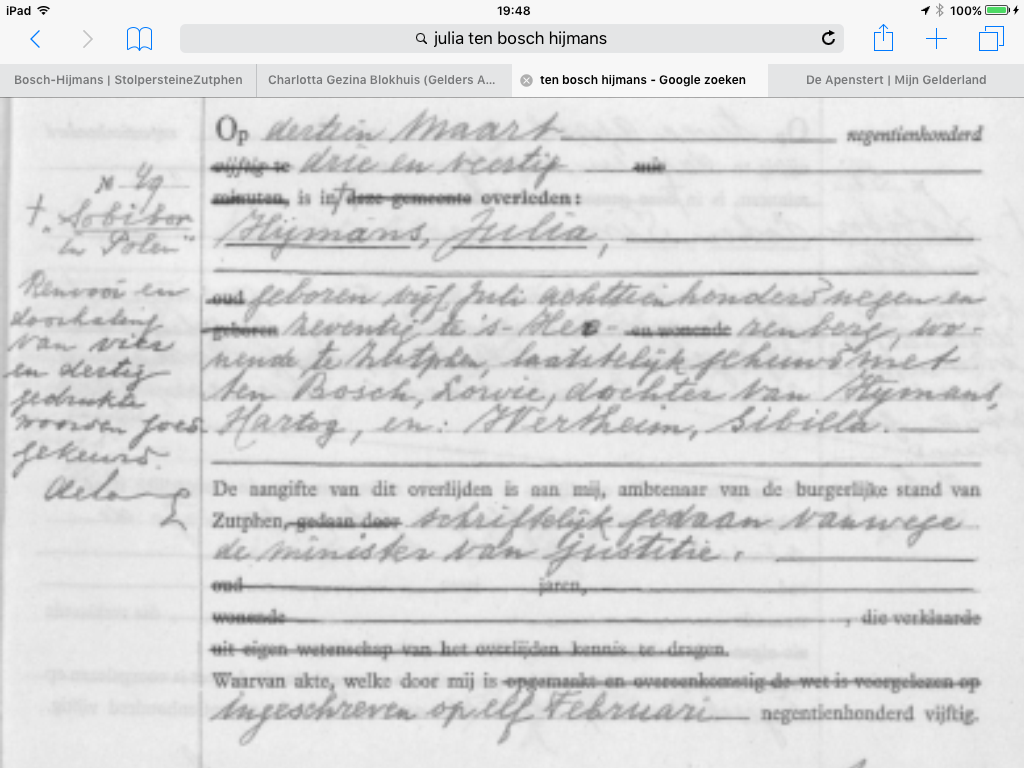 iPad 19:48 100%
julia ten bosch hijmans
Bosch-Hijmans | StolpersteineZutphen
Charlotta Gezina Blokhuis (Gelders A...
ten bosch hijmans - Google zoeken
De Apenstert | Mijn Gelderland
Op dertien Maart negentienhonderd
vijftig te drie en veertig
minuten, is in deze gemeente overleden:
Hijmans, Julia,
oud geboren vijf Juli achttienhonderd negen en
geboren zeventig te 's-Hee- en wonende renberg, wo-
nende te Zutphen, laatstelijk gehuwd met
ten Bosch, Lowie, dochter van Hijmans,
Hartog, en: Wertheim, Sibilla.
De aangifte van dit overlijden is aan mij, ambtenaar van de burgerlijke stand van
Zutphen, gedaan door schriftelijk gedaan vanwege
de minister van Justitie.
oud jaren,
wonende , die verklaarde
uit eigen wetenschap van het overlijden kennis te dragen.
Waarvan akte, welke door mij is opgemaakt en overeenkomstig de wet is voorgelezen op
ingeschreven op elf Februari negentienhonderd vijftig.
№ 49
† "Sobibor
in Polen"
Renvooi en
doorhaling
van vier
en dertig
gedrukte
woorden goed-
gekeurd.